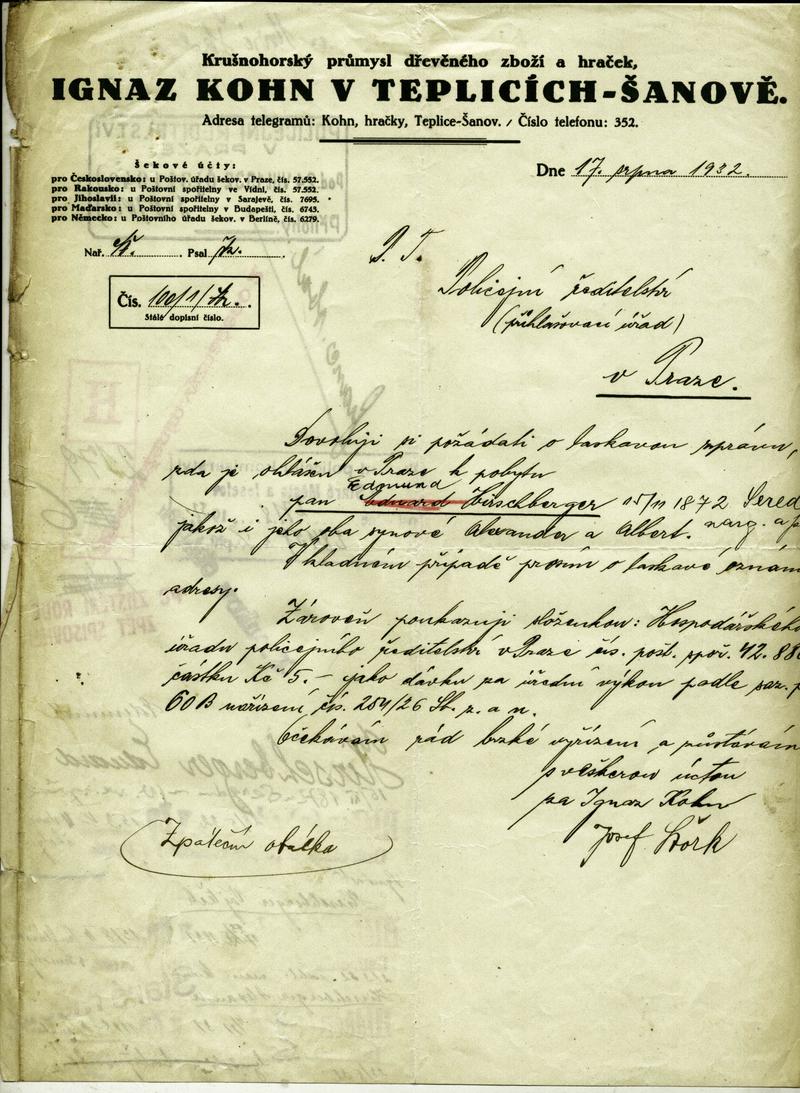 Krušnohorský průmysl dřevěného zboží a hraček,
IGNAZ KOHN V TEPLICÍCH-ŠANOVĚ.
Adresa telegramů: Kohn, hračky, Teplice-Šanov. / Číslo telefonu: 352.
šekové účty:
pro Československo: u Poštov. úřadu šekov. v Praze, čís. 57.552.
pro Rakousko: u Poštovní spořitelny ve Vídni, čís. 57.552.
pro Jihoslavii: u Poštovní spořitelny v Sarajevě, čís. 7695.
pro Maďarsko: u Poštovní spořitelny v Budapešti, čís. 6743.
pro Německo: u Poštovního úřadu šekov. v Berlíně, čís. 6279.
Dne 17. srpna 1932.
Nař. Psal
Čís. 100/1/
Stálé dopisní číslo.
P. T.
Policejní ředitelství
(přihlašovací úřad)
v Praze.
Dovoluji si požádati o laskavou zprávu,
zda je ohlášen v Praze k pobytu
Edmund
pan Eduard Hirschberger 15/11 1872 Sered
jakož i jeho oba synové Alexander a Albert.
V kladném případě prosím o laskavé oznám
adresy.
Zároveň poukazuji složenkou: Hospodářského
úřadu policejního ředitelství v Praze čís. pošt. spoř. 42.88
částku Kč 5.- jako dávku za úřední výkon podle saz. p
60 B nařízení čís. 254/26 Sb. z. a n.
Očekávám rád brzké vyřízení a zůstávám
s veškerou úctou
za Ignaz Kohn
Josef Störk
Zpáteční obálka